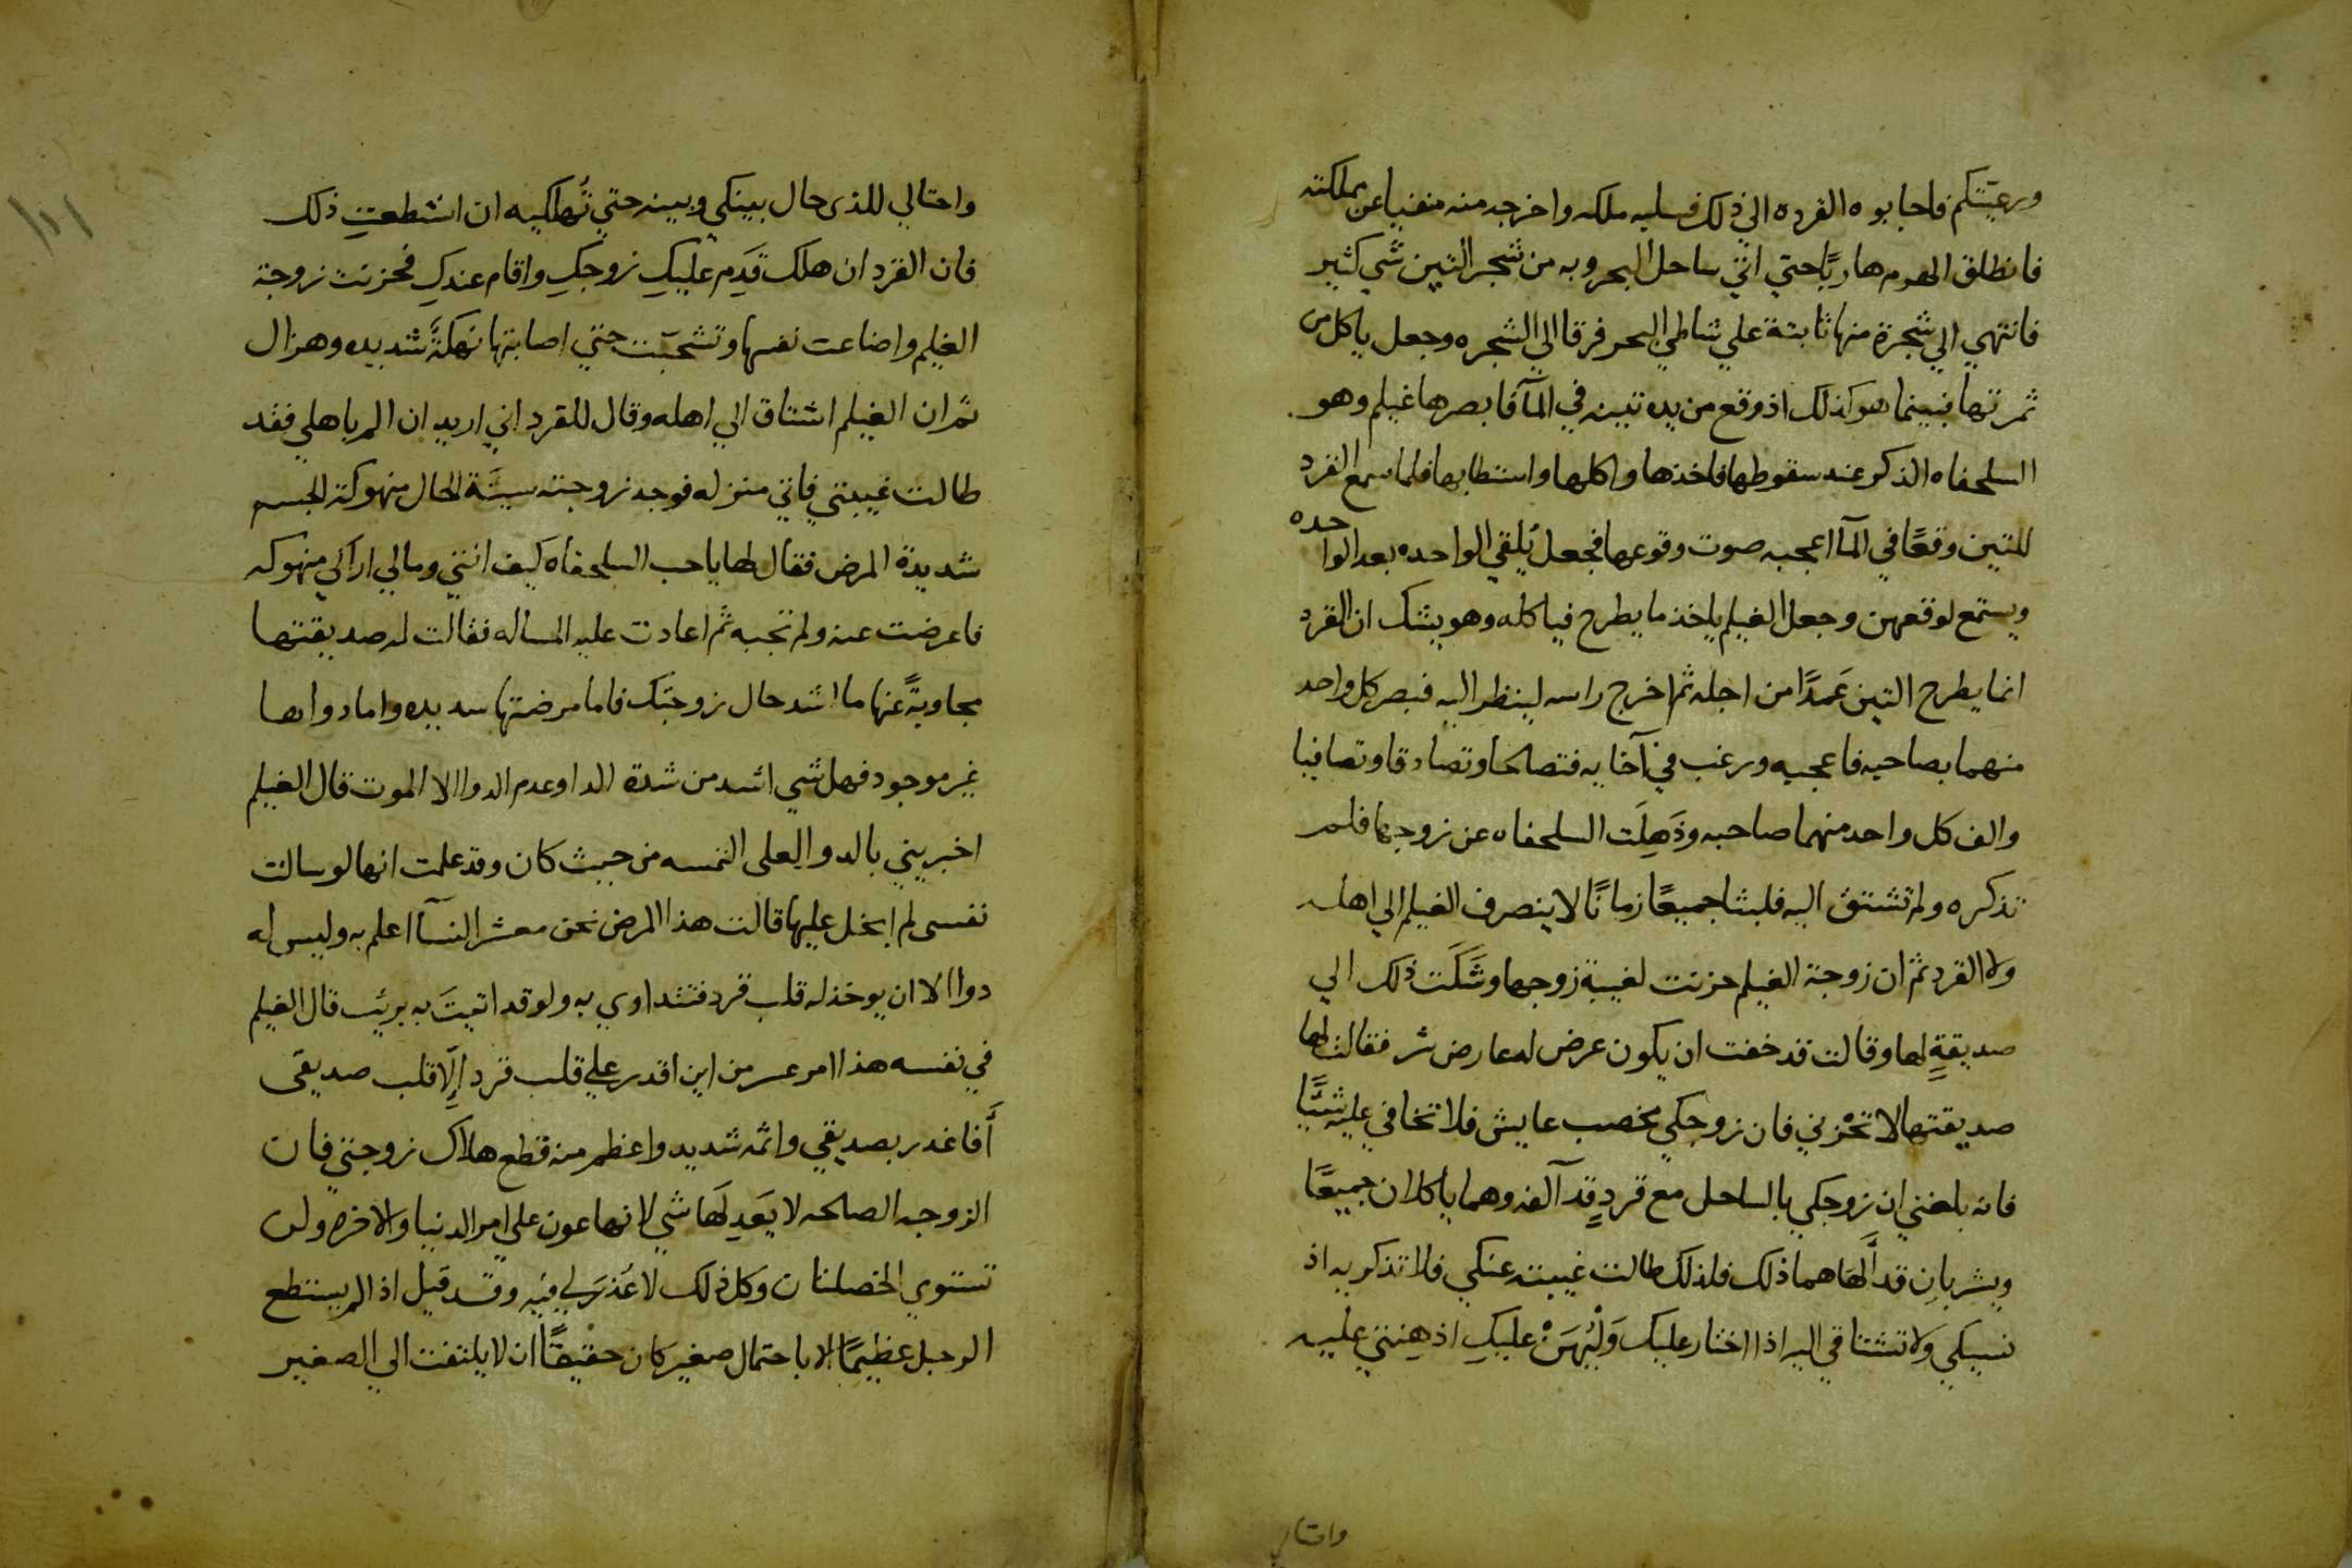 ورعيتكم فاجابوه القرده الي ذلك فسلبه ملكه واخرجه منه منفيا عن مملكته
فانطلق الهرم هاربًا حتي اتي ساحل البحر وبه من شجر التين شي كثير
فانتهي الي شجرة منها ثابتة علي شاطي البحر فرقا الي الشجره وجعل ياكل من
ثمرتها فبينما هو كذلك اذ وقع من يده تينه في المآ فابصرها غيلم وهو
السلحفاه الذكر عند سقوطها فاخذها واكلها واستطابها فلما سمع القرد
للتين وقعًا في المآ اعجبه صوت وقوعها فجعل يُلقي الواحده بعد الواحده
ويستمع لوقعهن وجعل الغيلم ياخذ ما يطرح فياكله وهو يشك ان القرد
انما يطرح التين عَمدًا من اجله ثم اخرج راسه لينظر اليه فبصر كل واحد
منهما بصاحبه فاعجبه ورغب في آخايه فتصالحا وتصادقا وتصافيا
والف كل واحد منهما صاحبه وذَهِلَت السلحفاه عن زوجها فلم
تذكره ولم تشتق اليه فلبثا جميعًا زمانًا لا ينصرف الغيلم الي اهله
ولا القرد ثم ان زوجة الغيلم حزنت لغيبة زوجها وشَكَت ذلك الي
صديقةٍ لها وقالت قد خفت ان يكون عرض له عارض شر فقالت لها
صديقتها لا تحْزني فان زوجكي مخصب عايش فلا تخافي عليه شيًا
فانه بلغني ان زوجكي بالساحل مع قردٍ قد آلفه وهما ياكلان جميعًا
ويشربانِ قد اَلهَاهما ذلك فلذلك طالت غيبته عنكي فلا تذكريه اذ
نسيكي ولا تشتاقي اليه اذا اختار عليك وَلْيَهُنْ عليكِ اذ هِنتي عليه
واحتالي
واحتالي للذي حال بينكي وبينه حتي تُهلكيه ان استطعتِ ذلك
فان القرد ان هلك قَدِم عليكِ زوجكِ واقام عندكِ فحزنت زوجة
الغيلم واضاعت نفسها وتشحبّت حتي اصابتها نهكةً شديده وهزال
ثم ان الغيلم اشتاق الي اهله وقال للقرد اني اريد ان الم باهلي فقد
طالت غيبتي فاتي منزله فوجد زوجته سيئَة الحال منهوكة الجسم
شديدة المرض فقال لها يا حب السلحفاه كيف انتي ومالي اراكي منهوكه
فاعرضت عنه ولم تجبه ثم اعادت عليه المساله فقالت له صديقتها
مجاوبةً عنها ما اشد حال زوجتَك فاما مرضتها شديده واما دواها
غير موجود فهل شي اشد من شدة الدا وعدم الدوا الا الموت قال الغيلم
اخبريني بالدوا لعلي التمسه من حيث كان وقد علمت انها لو سالت
نفسي لم ابخل عليها قالت هذا المرض نحن معشر النسآ اعلم به وليس له
دوا الا ان يوخذ له قلب قرد فتتداوي به ولو قد اتيتَ به بريَت قال الغيلم
في نفسه هذا امر عسر من اين اقدر علي قلب قرد إِلّا قلب صديقي
أَفاغدر بصديقي واثمه شديد واعظم منه قطع هلاك زوجتي فان
الزوجه الصالحه لا يَعدِلهَا شي لانها عون علي امر الدنيا والاخره ولن
تستوي الخصلتان وكل ذلك لا عُذرَ لي فيه وقد قيل اذا لم يستطع
الرجل عظيمًا الا باحتمال صغير كان حقيقًا ان لا يلتفت الي الصغير
١١١